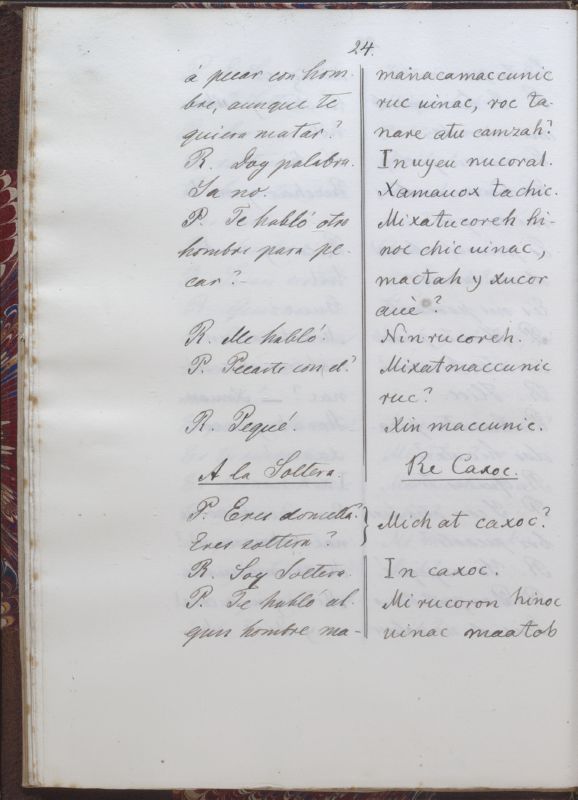 24.
á pecar con hom-
bre, aunque te
quiera matar?
R. Doy palabra.
Ya no.
P. Te habló otro
hombre para pe-
car?-
R. Me habló.
P. Pecaste con él?
R. Pequé.
A la Soltera.
P. Eres doncella?
Eres soltera?
R. Soy Soltera.
P. Te habló al-
gun hombre ma-
manacamaccunic
ruc uinac, roc ta-
nare atu camzah?
In uyeu nucoral.
Xamauox tachic.
Mixatucoreh hi-
noc chic uinac,
mactah y xucor
auè?
Nin rucoreh.
Mixatmaccunic
ruc?
Xin maccunic.
Re Caxoc.
Michat caxoc?
In caxoc.
Mi rucoron hinoc
uinac maatob